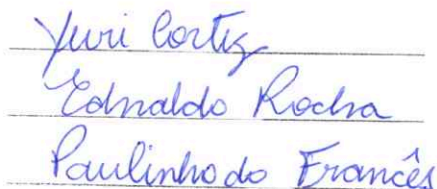 Yuri Cortez
Ednaldo Rocha
Paulinho do Francês